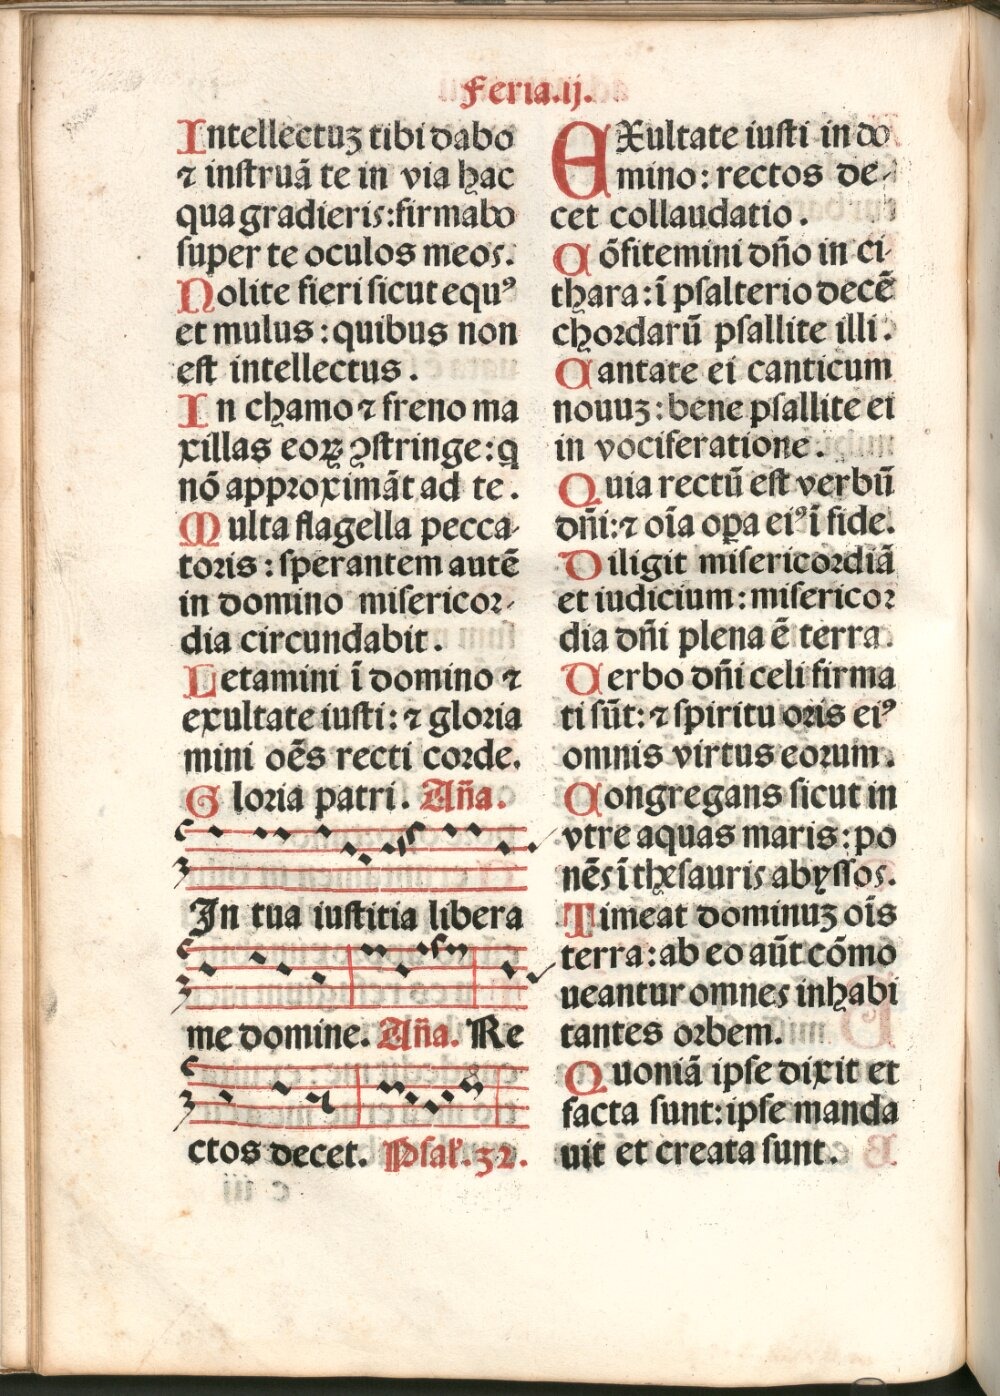 Feria.ij.
Intellectuʒ tibi dabo
⁊ inſtruā te in via hac
qua gradieris:firmabo
ſuper te oculos meos.
Nolite fieri ſicut equꝰ
et mulus : quibus non
eſt intellectus .
In chamo ⁊ freno ma
xillas eoꝝ ꝯſtringe: q
nō approximāt ad te .
Multa flagella pecca-
toris : ſperantem autē
in domino miſericor-
dia circundabit .
Letamini ī domino ⁊
exultate iuſti: ⁊ gloria
mini oēs recti corde.
Gloria patri. Aña.
In tua iuſtitia libera
me domine. Aña. Re
ctos decet. Pſal. 32.
EXultate iuſti in do
mino : rectos de-
cet collaudatio .
Cōfitemini dño in ci-
thara: ī pſalterio decē
chordarū pſallite illi .
Cantate ei canticum
nouuʒ : bene pſallite ei
in vociferatione .
Quia rectū eſt verbū
dñi: ⁊ oīa oꝑa eiꝰ ī fide.
Diligit miſericordiā
et iudicium : miſericor
dia dñi plena ē terra.
Verbo dñi celi firma
ti ſūt: ⁊ ſpiritu oris eiꝰ
omnis virtus eorum .
Congregans ſicut in
vtre aquas maris : po
nēs ī theſauris abyſſos.
Timeat dominuʒ oīs
terra: ab eo aūt cōmo
ueantur omnes inhabi
tantes orbem.
Quoniā ipſe dixit et
facta ſunt: ipſe manda
uit et creata ſunt .